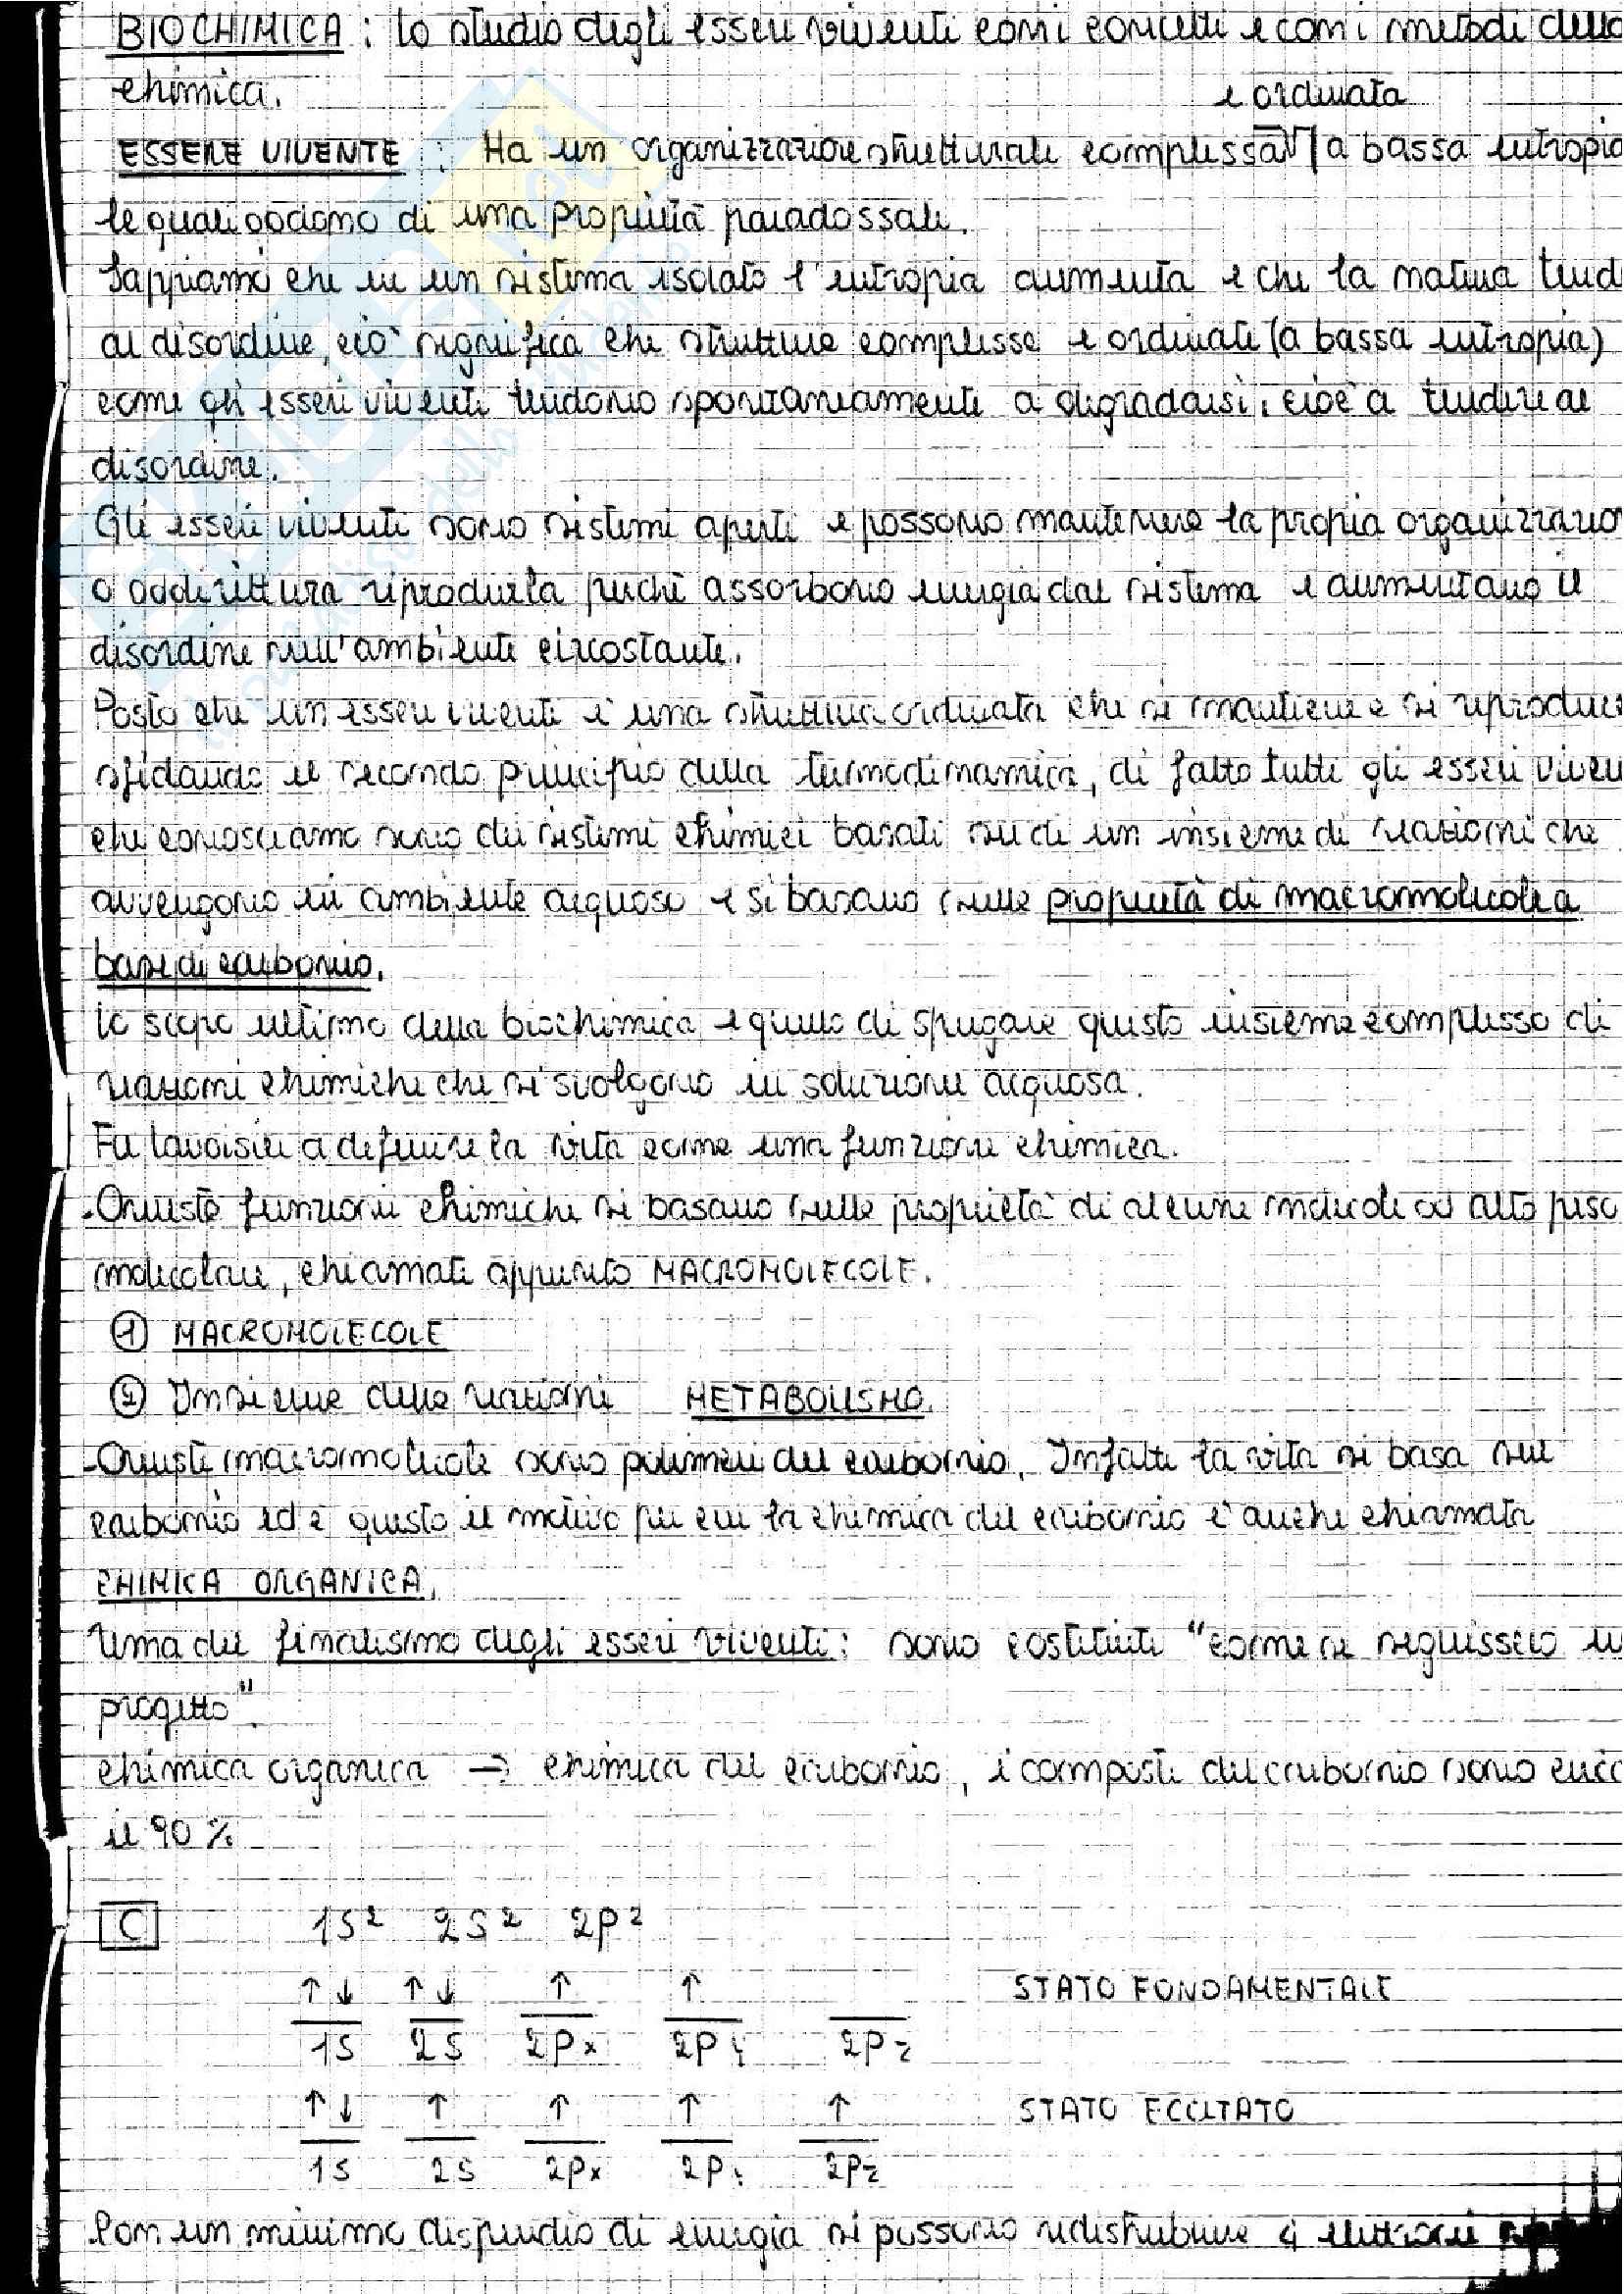 BIOCHIMICA : lo studio degli esseri viventi con i concetti e con i metodi della
chimica.
e ordinata
ESSERE VIVENTE : Ha un organizzazione strutturale complessa a bassa entropia
le quali godono di una proprietà paradossale.
Sappiamo che in un sistema isolato l'entropia aumenta e che la natura tend
al disordine, ciò significa che strutture complesse e ordinate (a bassa entropia)
come gli esseri viventi tendono spontaneamente a degradarsi, cioè a tendere al
disordine.
Gli esseri viventi sono sistemi aperti e possono mantenere la propria organizzazio
o addirittura riprodurla perchè assorbono energia dal sistema e aumentano il
disordine nell'ambiente circostante.
Posto che un essere vivente è una struttura ordinata che si mantiene e si riproduce
sfidando il secondo principio della termodinamica, di fatto tutti gli esseri viven
che conosciamo sono dei sistemi chimici basati su di un insieme di reazioni che
avvengono in ambiente acquoso e si basano sulle proprietà di macromolecole a
base di carbonio.
Lo scopo ultimo della biochimica e quello di spiegare questo insieme complesso di
reazioni chimiche che si svolgono in soluzione acquosa.
Fu Lavoisier a definire la vita come una funzione chimica.
-Queste funzioni chimiche si basano sulle proprietà di alcune molecole ad alto peso
molecolare, chiamate appunto MACROMOLECOLE.
① MACROMOLECOLE
② Insieme delle reazioni METABOLISMO.
-Queste macromolecole sono polimeri del carbonio. Infatti la vita si basa sul
carbonio ed è questo il motivo per cui la chimica del carbonio è anche chiamata
CHIMICA ORGANICA.
Tema del finalismo degli esseri viventi: sono costituiti "come se seguissero un
progetto".
chimica organica → chimica del carbonio, i composti del carbonio sono circa
il 90%
C 1S² 2S² 2P²
↑↓ ↑↓ ↑ ↑ STATO FONDAMENTALE
1S 2S 2Px 2Py 2Pz
↑↓ ↑ ↑ ↑ ↑ STATO ECCITATO
1S 2S 2Px 2Py 2Pz
Con un minimo dispendio di energia si possono ridistribuire 4 elettroni